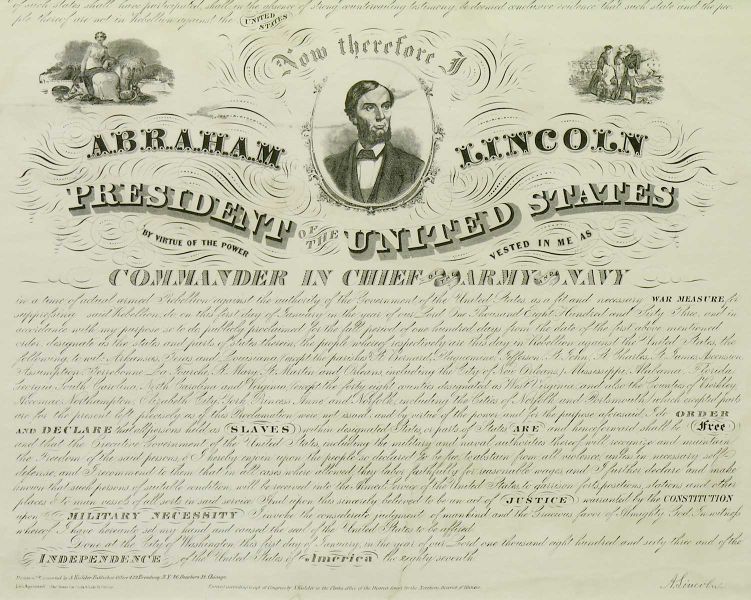 of such states shall have participated, shall in the absence of strong countervailing testimony, be deemed conclusive evidence that such state and the peo-
ple thereof are not in Rebellion against the UNITED STATES
Now therefore I
ABRAHAM LINCOLN
PRESIDENT OF THE UNITED STATES
BY VIRTUE OF THE POWER VESTED IN ME AS
COMMANDER IN CHIEF OF THE ARMY AND NAVY
in a time of actual armed Rebellion against the authority of the Government of the United States, as a fit and necessary WAR MEASURE for
suppressing said Rebellion, do on this first day of January in the year of our Lord One Thousand Eight Hundred and Sixty Three, and in
accordance with my purpose so to do, publicly proclaimed for the full period of one hundred days from the date of the first above mentioned
order, designate as the states and parts of States therein, the people whereof respectively are this day in Rebellion against the United States, the
following to wit: Arkansas, Texas and Louisiana, (except the parishes St. Bernard, Plaquemine, Jefferson, St. John, St. Charles, St. James, Ascension,
Assumption, Terrebonne, La Fourche, St. Mary, St. Martin and Orleans, including the City of New Orleans,) Mississippi, Alabama, Florida,
Georgia, South Carolina, North Carolina and Virginia, (except the forty eight counties designated as West Virginia, and also the Counties of Berkley,
Accomac, Northampton, Elizabeth City, York, Princess Anne and Norfolk, including the Cities of Norfolk and Portsmouth,) which excepted parts
are for the present left precisely as if this Proclamation were not issued, and by virtue of the power and for the purpose aforesaid, I do ORDER
AND DECLARE that all persons held as SLAVES within designated States, or parts of States ARE and henceforward shall be Free
and that the Executive Government of the United States, including the military and naval authorities thereof will recognize and maintain
the Freedom of the said persons, & I hereby enjoin upon the people so declared to be free to abstain from all violence, unless in necessary self-
defense, and I recommend to them that in all cases where allowed, they labor faithfully for reasonable wages, and I further declare and make
known that such persons of suitable condition, will be received into the Armed Service of the United States to garrison forts, positions, stations and other
places & to man vessels of all sorts in said service. And upon this sincerely believed to be an act of JUSTICE warranted by the CONSTITUTION
upon MILITARY NECESSITY I invoke the considerate judgment of mankind and the Gracious favor of Almighty God. In witness
whereof I have hereunto set my hand and caused the seal of the United States to be affixed.
Given at the City of Washington, this first day of January, in the year of our Lord, one thousand eight hundred and sixty three and of the
INDEPENDENCE of the United States of America the eighty seventh
A. Lincoln